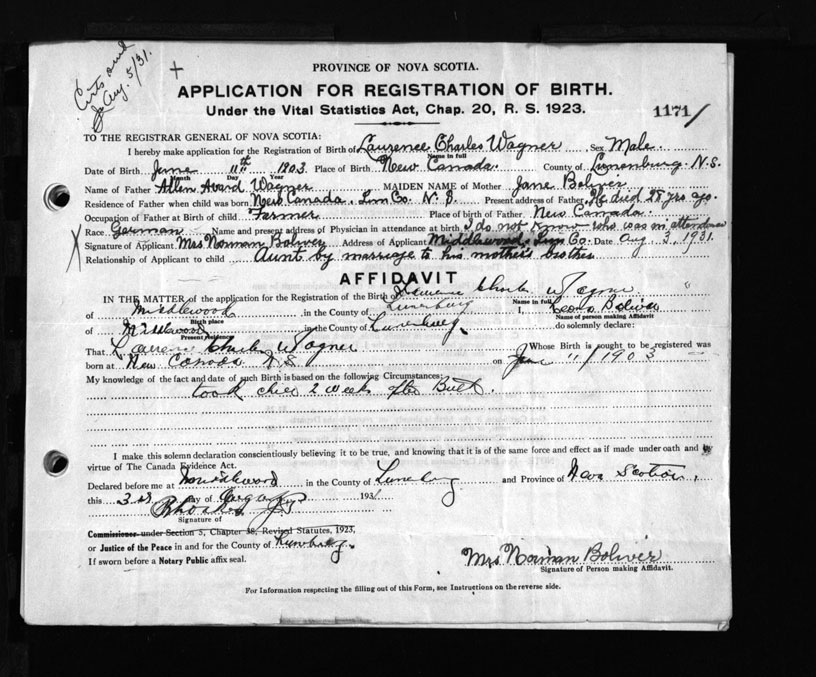 Certs and
Aug. 5/31.
PROVINCE OF NOVA SCOTIA.
APPLICATION FOR REGISTRATION OF BIRTH.
Under the Vital Statistics Act, Chap. 20, R. S. 1923.
1171/
TO THE REGISTRAR GENERAL OF NOVA SCOTIA:
I hereby make application for the Registration of Birth of Laurence Charles Wagner Sex Male.
Name in full
Date of Birth June 11th 1903 Place of Birth New Canada. County of Lunenburg. N.S.
Month Day Year
Name of Father Allen Avard Wagner MAIDEN NAME of Mother Jane Boliver
Residence of Father when child was born New Canada. Lun Co. N. S. Present address of Father He died 28 yrs ago.
Occupation of Father at Birth of child Farmer Place of birth of Father New Canada.
Race German Name and present address of Physician in attendance at birth I do not know who was in attendance
Signature of Applicant Mrs Norman Boliver Address of Applicant Middlewood, Lun Co. Date Aug. 3, 1931.
Relationship of Applicant to child Aunt by marriage to his mother's brother
AFFIDAVIT
IN THE MATTER of the application for the Registration of the Birth of Laurence Charles Wagner
Name in full
of Middlewood in the County of Lunenburg I, Boliver
Birth place Name of person making Affidavit
of Middlewood in the County of Lunenburg do solemnly declare:
Present residence
That Laurence Charles Wagner Whose Birth is sought to be registered was
born at New Canada N.S. on June 11/1903
My knowledge of the fact and date of such Birth is based on the following Circumstances:
took 2 weeks after
I make this solemn declaration conscientiously believing it to be true, and knowing that it is of the same force and effect as if made under oath and by
virtue of The Canada Evidence Act.
Declared before me at Middlewood in the County of Lunenburg and Province of Nova Scotia,
this 3rd day of August 1931
Signature of
Commissioner under Section 5, Chapter 38, Revised Statutes, 1923,
or Justice of the Peace in and for the County of Lunenburg.
If sworn before a Notary Public affix seal.
Mrs Norman Boliver
Signature of Person making Affidavit.
For Information respecting the filling out of this Form, see Instructions on the reverse side.